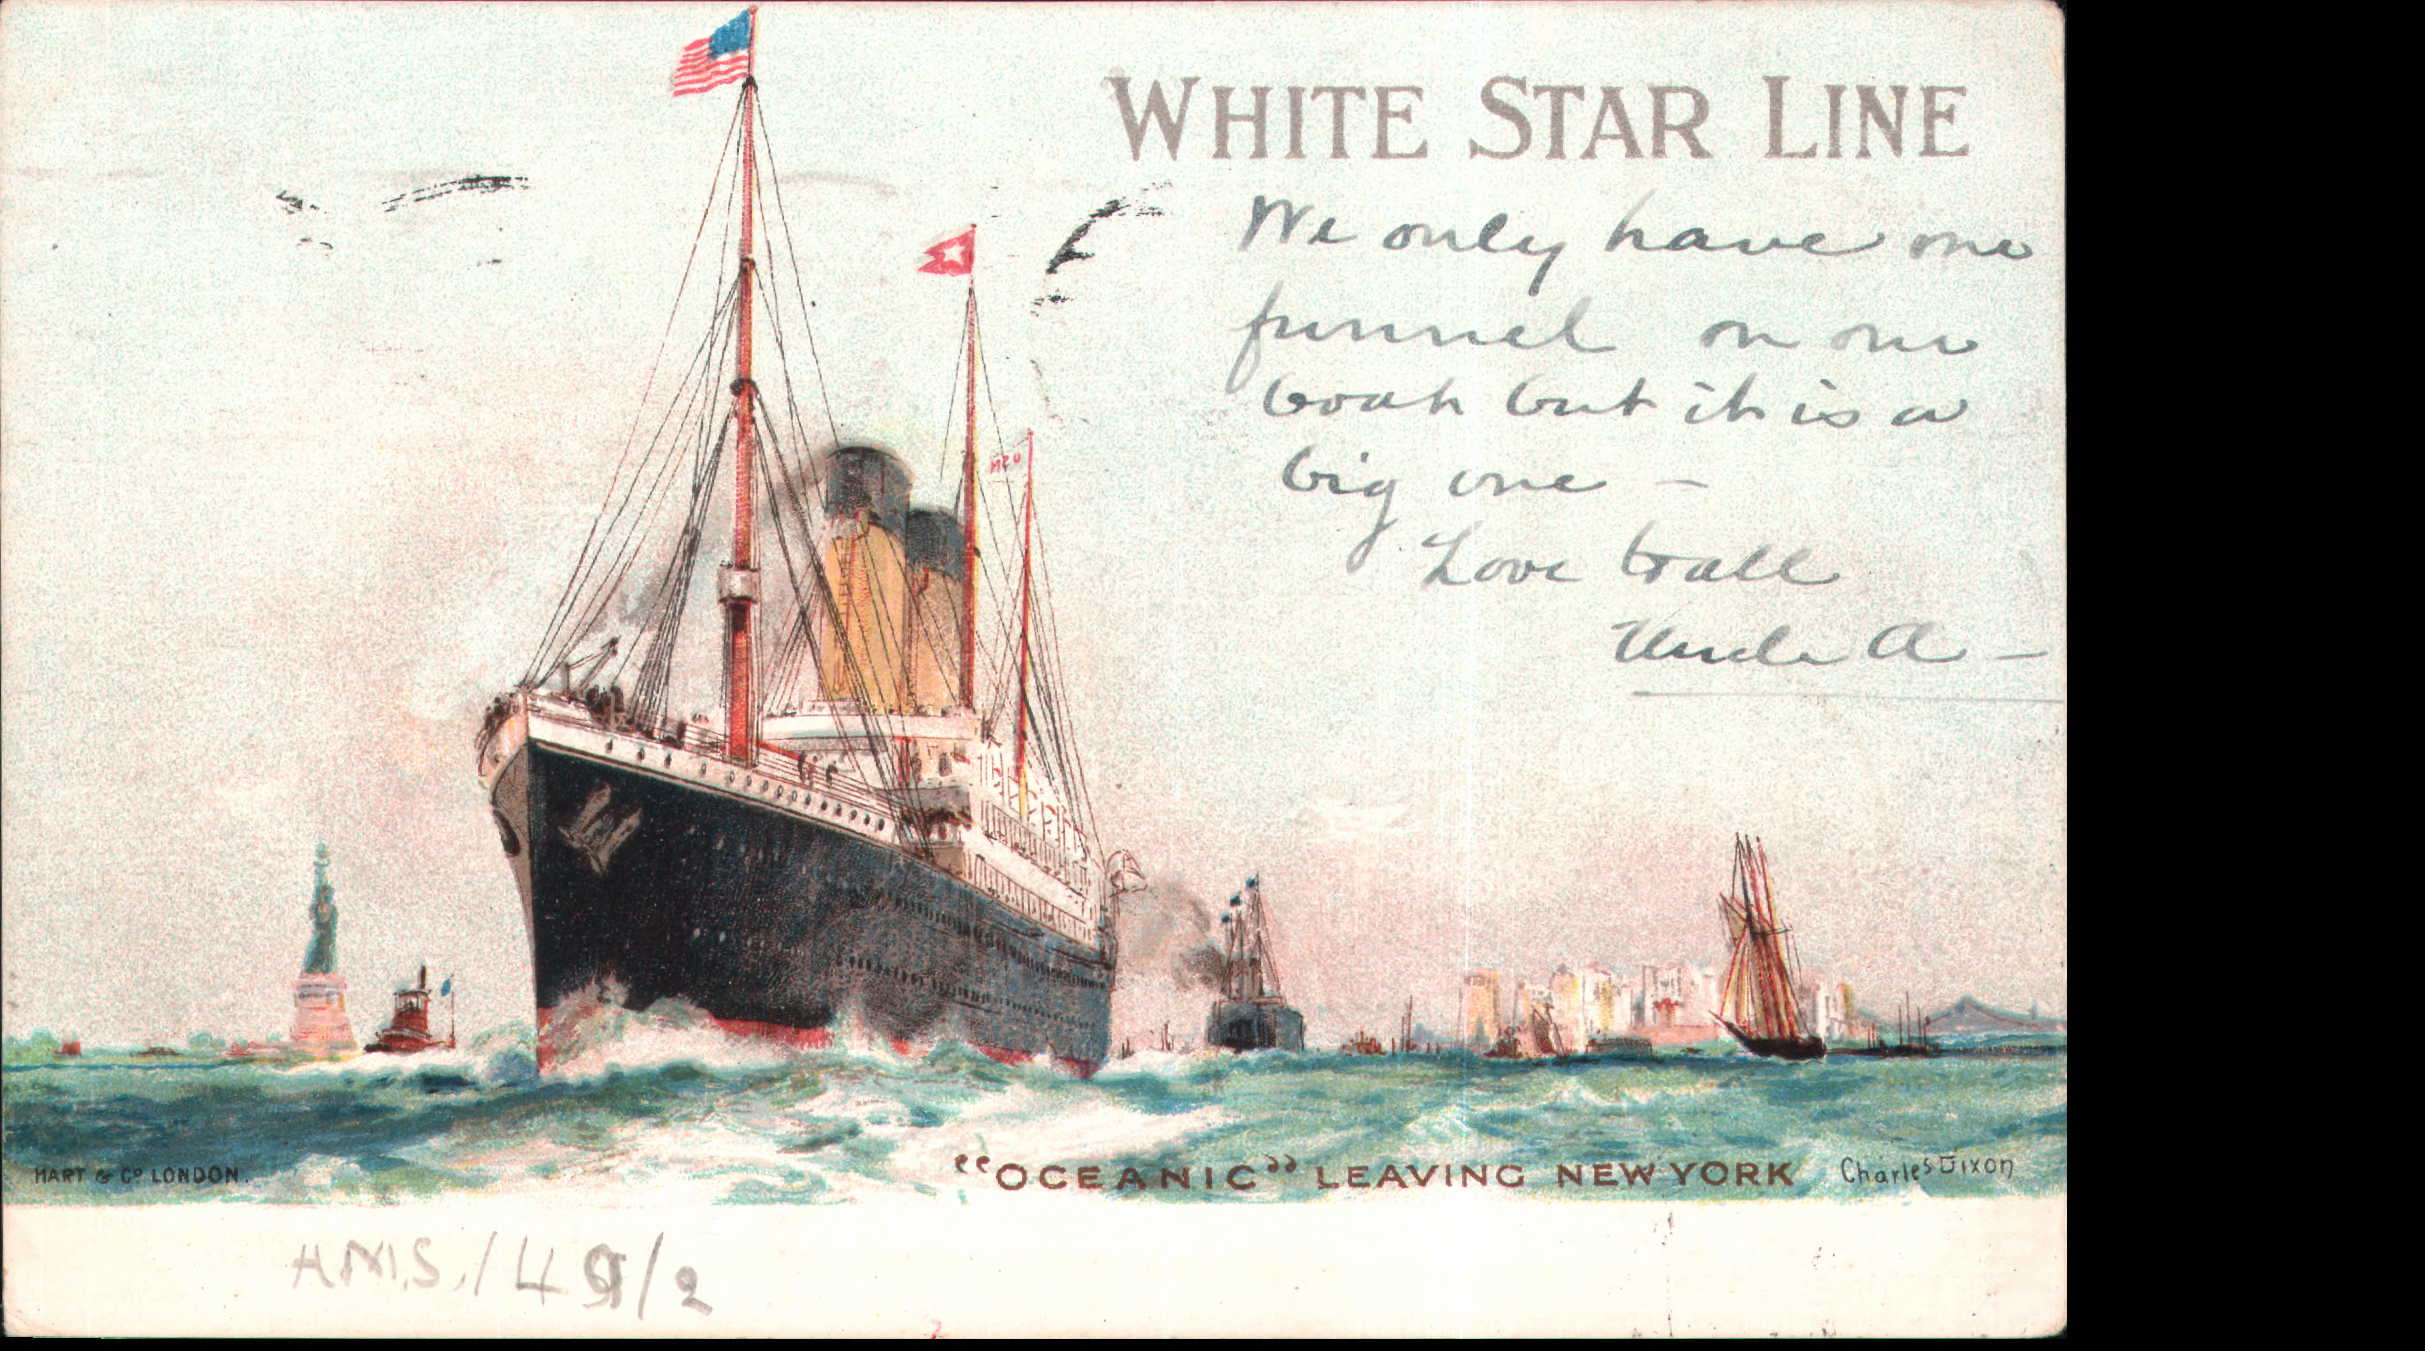 WHITE STAR LINE
We only have one
funnel on our
boat but it is a
big one –
Love to all
Uncle A –
HART & Co LONDON.
"OCEANIC" LEAVING NEW YORK
Charles Dixon
H.M.S./49/2